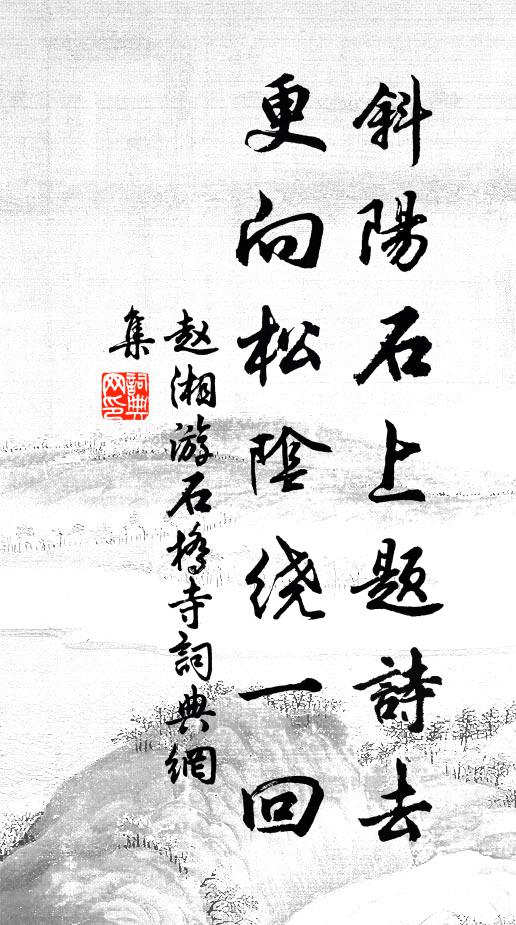 斜陽石上題詩去
更向松陰绕一回
赵湘游石橋寺詞典網
集
詞典
网印